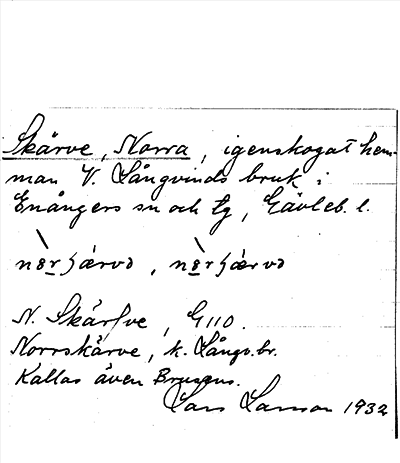 Skärve, Norra, igenskogat hem-
man V. Långvinds bruk i
Enångers sn och tg, Gävleb. l.
N. Skärfve, G110.
Norrskärve, k. Långv. br.
Kallas även Brusens.
Lars Larsson 1932